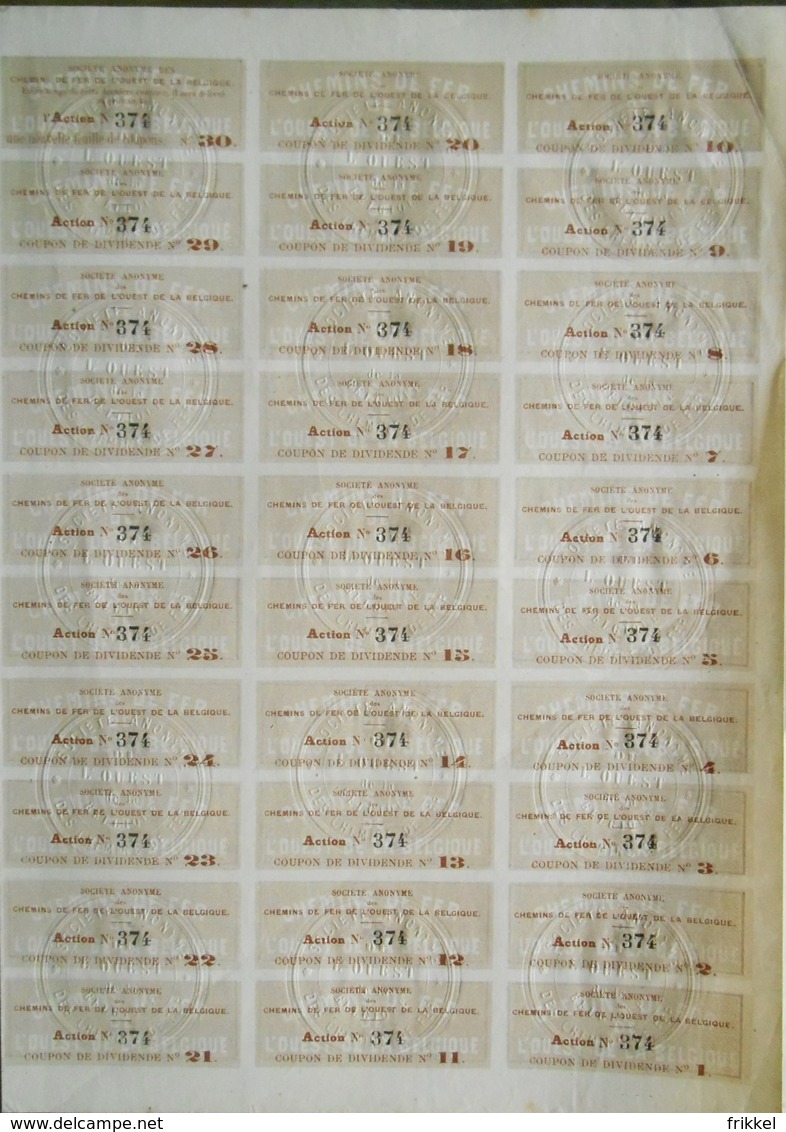 SOCIÉTÉ ANONYME DES
CHEMINS DE FER DE L'OUEST DE LA BELGIQUE.
l'Action Nº 374
une nouvelle feuille de Coupons. Nº 30.
SOCIÉTÉ ANONYME
CHEMINS DE FER DE L'OUEST DE LA BELGIQUE.
Action Nº 374
COUPON DE DIVIDENDE Nº 20
SOCIÉTÉ ANONYME
CHEMINS DE FER DE L'OUEST DE LA BELGIQUE.
Action Nº 374
COUPON DE DIVIDENDE Nº 10.
SOCIÉTÉ ANONYME
des
CHEMINS DE FER DE L'OUEST DE LA BELGIQUE.
Action Nº 374
COUPON DE DIVIDENDE Nº 29.
SOCIÉTÉ ANONYME
des
CHEMINS DE FER DE L'OUEST DE LA BELGIQUE.
Action Nº 374
COUPON DE DIVIDENDE Nº 19.
SOCIÉTÉ ANONYME
des
CHEMINS DE FER DE L'OUEST DE LA BELGIQUE.
Action Nº 374
COUPON DE DIVIDENDE Nº 9.
SOCIÉTÉ ANONYME
des
CHEMINS DE FER DE L'OUEST DE LA BELGIQUE.
Action Nº 374
COUPON DE DIVIDENDE Nº 28.
SOCIÉTÉ ANONYME
des
CHEMINS DE FER DE L'OUEST DE LA BELGIQUE.
Action Nº 374
COUPON DE DIVIDENDE Nº 18.
SOCIÉTÉ ANONYME
des
CHEMINS DE FER DE L'OUEST DE LA BELGIQUE.
Action Nº 374
COUPON DE DIVIDENDE Nº 8.
SOCIÉTÉ ANONYME
des
CHEMINS DE FER DE L'OUEST DE LA BELGIQUE.
Action Nº 374
COUPON DE DIVIDENDE Nº 27.
SOCIÉTÉ ANONYME
des
CHEMINS DE FER DE L'OUEST DE LA BELGIQUE.
Action Nº 374
COUPON DE DIVIDENDE Nº 17.
SOCIÉTÉ ANONYME
des
CHEMINS DE FER DE L'OUEST DE LA BELGIQUE.
Action Nº 374
COUPON DE DIVIDENDE Nº 7.
SOCIÉTÉ ANONYME
des
CHEMINS DE FER DE L'OUEST DE LA BELGIQUE.
Action Nº 374
COUPON DE DIVIDENDE Nº 26.
SOCIÉTÉ ANONYME
des
CHEMINS DE FER DE L'OUEST DE LA BELGIQUE.
Action Nº 374
COUPON DE DIVIDENDE Nº 16.
SOCIÉTÉ ANONYME
des
CHEMINS DE FER DE L'OUEST DE LA BELGIQUE.
Action Nº 374
COUPON DE DIVIDENDE Nº 6.
SOCIÉTÉ ANONYME
des
CHEMINS DE FER DE L'OUEST DE LA BELGIQUE.
Action Nº 374
COUPON DE DIVIDENDE Nº 25.
SOCIÉTÉ ANONYME
des
CHEMINS DE FER DE L'OUEST DE LA BELGIQUE.
Action Nº 374
COUPON DE DIVIDENDE Nº 15.
SOCIÉTÉ ANONYME
des
CHEMINS DE FER DE L'OUEST DE LA BELGIQUE.
Action Nº 374
COUPON DE DIVIDENDE Nº 5.
SOCIÉTÉ ANONYME
des
CHEMINS DE FER DE L'OUEST DE LA BELGIQUE.
Action Nº 374
COUPON DE DIVIDENDE Nº 24.
SOCIÉTÉ ANONYME
des
CHEMINS DE FER DE L'OUEST DE LA BELGIQUE.
Action Nº 374
COUPON DE DIVIDENDE Nº 14.
SOCIÉTÉ ANONYME
des
CHEMINS DE FER DE L'OUEST DE LA BELGIQUE.
Action Nº 374
COUPON DE DIVIDENDE Nº 4.
SOCIÉTÉ ANONYME
des
CHEMINS DE FER DE L'OUEST DE LA BELGIQUE.
Action Nº 374
COUPON DE DIVIDENDE Nº 23.
SOCIÉTÉ ANONYME
des
CHEMINS DE FER DE L'OUEST DE LA BELGIQUE.
Action Nº 374
COUPON DE DIVIDENDE Nº 13.
SOCIÉTÉ ANONYME
des
CHEMINS DE FER DE L'OUEST DE LA BELGIQUE.
Action Nº 374
COUPON DE DIVIDENDE Nº 3.
SOCIÉTÉ ANONYME
des
CHEMINS DE FER DE L'OUEST DE LA BELGIQUE.
Action Nº 374
COUPON DE DIVIDENDE Nº 22.
SOCIÉTÉ ANONYME
des
CHEMINS DE FER DE L'OUEST DE LA BELGIQUE.
Action Nº 374
COUPON DE DIVIDENDE Nº 12.
SOCIÉTÉ ANONYME
des
CHEMINS DE FER DE L'OUEST DE LA BELGIQUE.
Action Nº 374
COUPON DE DIVIDENDE Nº 2.
SOCIÉTÉ ANONYME
des
CHEMINS DE FER DE L'OUEST DE LA BELGIQUE.
Action Nº 374
COUPON DE DIVIDENDE Nº 21.
SOCIÉTÉ ANONYME
des
CHEMINS DE FER DE L'OUEST DE LA BELGIQUE.
Action Nº 374
COUPON DE DIVIDENDE Nº 11.
SOCIÉTÉ ANONYME
des
CHEMINS DE FER DE L'OUEST DE LA BELGIQUE.
Action Nº 374
COUPON DE DIVIDENDE Nº 1.
delcampe.net
frikkel